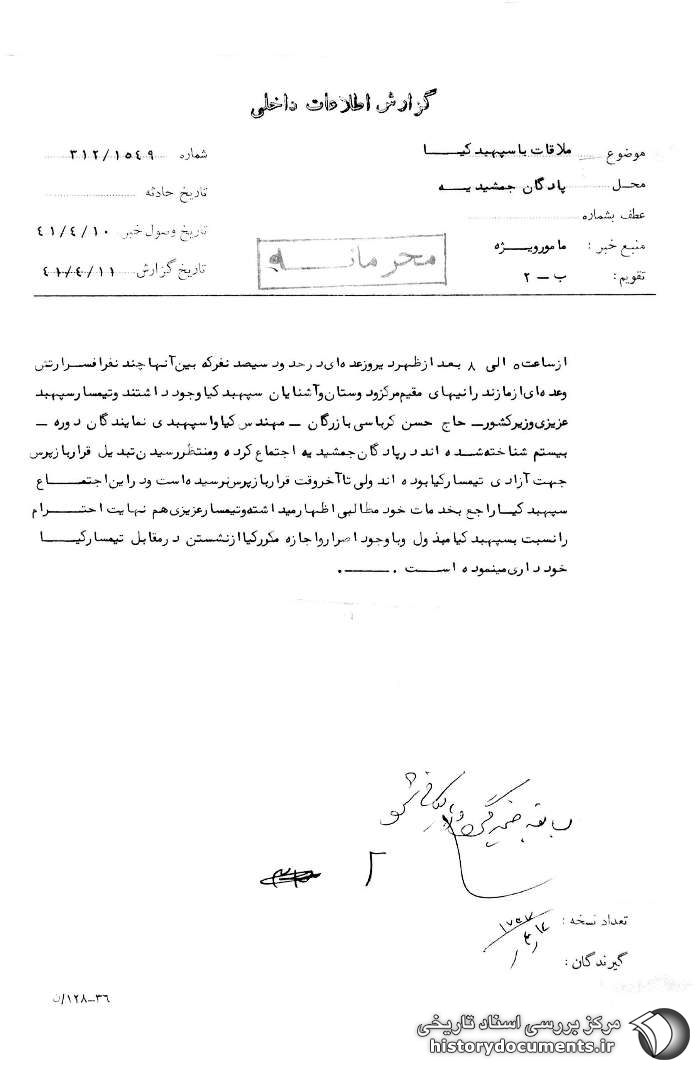 گزارش اطلاعات داخلی
موضوع ملاقات با سپهبد کیــا
شماره ۳۱۲/۱۵۴۹
محل پادگان جمشیدیــه
تاریخ حادثه
عطف بشماره
تاریخ وصول خبر ۴۱/۴/۱۰
منبع خبر : مامور ویـژه
تاریخ گزارش ۴۱/۴/۱۱
تقویم : ب ــ ۲
محرمانــه
از ساعت ۵ الی ۸ بعد از ظهر دیروز عده ای در حدود سیصد نفر که بین آنها چند نفر افسر ارتش
وعده ای از مازندرانیهای مقیم مرکز ودوستان وآشنایان سپهبد کیا وجود داشتند وتیمسار سپهبد
عزیزی وزیر کشور ــ حاج حسن کرباسی بازرگان ــ مهندس کیا واسپهبدی نمایندگان دوره ــ
بیستم شناخته شده اند در پادگان جمشیدیه اجتماع کرده ومنتظر رسیدن تبدیل قرار بازپرس
جهت آزادی تیمسار کیا بوده اند ولی تا آخر وقت قرار بازپرس نرسیده است ودر این اجتمــاع
سپهبد کیــا راجع بخدمات خود مطالبی اظهار میداشته وتیمسار عزیزی هم نهایت احتــرام
را نسبت بسپهبد کیا مبذول وبا وجود اصرار واجازه مکرر کیا از نشستن در مقابل تیمسار کیــا
خودداری مینموده اســت . ــــ .
تعداد نسخه :
گیرندگان :
۳۶ــ۱۲۸/ن
مرکز بررسی اسناد تاریخی
historydocuments.ir